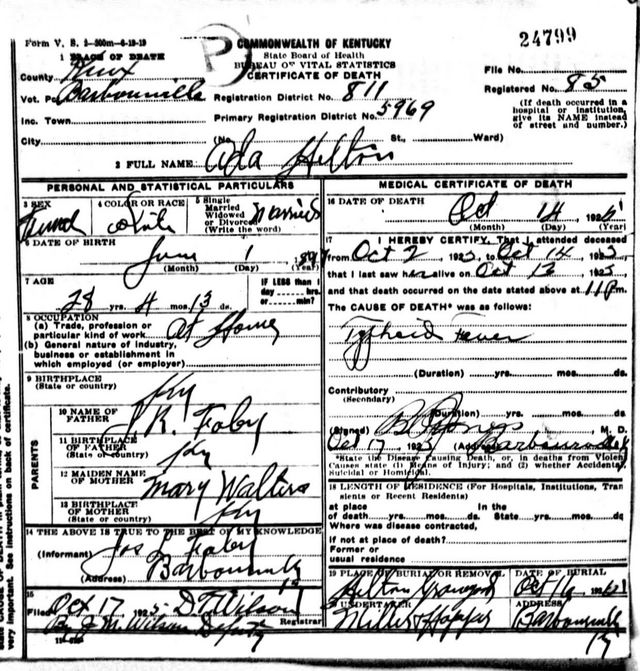 Form V. S. 2-300m-6-19-19
24799
P
COMMONWEALTH OF KENTUCKY
State Board of Health
BUREAU OF VITAL STATISTICS
CERTIFICATE OF DEATH
1 PLACE OF DEATH
County Knox
Vot. Pc Barbourville
Inc. Town
City
Registration District No. 811
Primary Registration District No. 5969
(No. St., Ward)
File No.
Registered No. 85
(If death occurred in a
hospital or institution,
give its NAME instead
of street and number.)
2 FULL NAME Ada Helton
PERSONAL AND STATISTICAL PARTICULARS
3 SEX
4 COLOR OR RACE White
5 Single
Married
Widowed
or Divorced
(Write the word)
Married
6 DATE OF BIRTH
June 1 1897
(Month) (Day) (Year)
7 AGE
28 yrs. 4 mos. 13 ds.
IF LESS than 1
day hrs.
or min?
8 OCCUPATION
(a) Trade, profession or
particular kind of work At Home
(b) General nature of industry,
business or establishment in
which employed (or employer)
9 BIRTHPLACE
(State or country)
Ky
PARENTS
10 NAME OF
FATHER
J.R. Faley
11 BIRTHPLACE
OF FATHER
(State or country)
Ky
12 MAIDEN NAME
OF MOTHER
Mary Walters
13 BIRTHPLACE
OF MOTHER
(State or country)
Ky
14 THE ABOVE IS TRUE TO THE BEST OF MY KNOWLEDGE
(Informant) Jos Faley
(Address) Barbourville
15
Filed Oct 17 1925 D T Wilson
Registrar
By J M Wilson Deputy
MEDICAL CERTIFICATE OF DEATH
16 DATE OF DEATH
Oct 14, 1925
(Month) (Day) (Year)
17
I HEREBY CERTIFY, That I attended deceased
from Oct 2 1925, to Oct 14 1925
that I last saw her alive on Oct 13 1925
and that death occurred on the date stated above at 11 P.m.
The CAUSE OF DEATH* was as follows:
Typhoid Fever
(Duration) yrs. mos. ds.
Contributory
(Secondary)
(Duration) yrs. mos. ds.
(Signed) M. D.
Oct 17 1925 (Address) Barbourville
*State the Disease Causing Death, or, in deaths from Violent
Causes state (1) Means of Injury; and (2) whether Accidental,
Suicidal or Homicidal.
18 LENGTH OF RESIDENCE (For Hospitals, Institutions, Tran-
sients or Recent Residents)
at place In the
of death yrs. mos. ds. State yrs. mos. ds.
Where was disease contracted,
if not at place of death?
Former or
usual residence
19 PLACE OF BURIAL OR REMOVAL
Helton Graveyard
DATE OF BURIAL
Oct 16 192
20 UNDERTAKER
Miller & Hopper
ADDRESS
Barbourville
Ky
very important. See instructions on back of certificate.